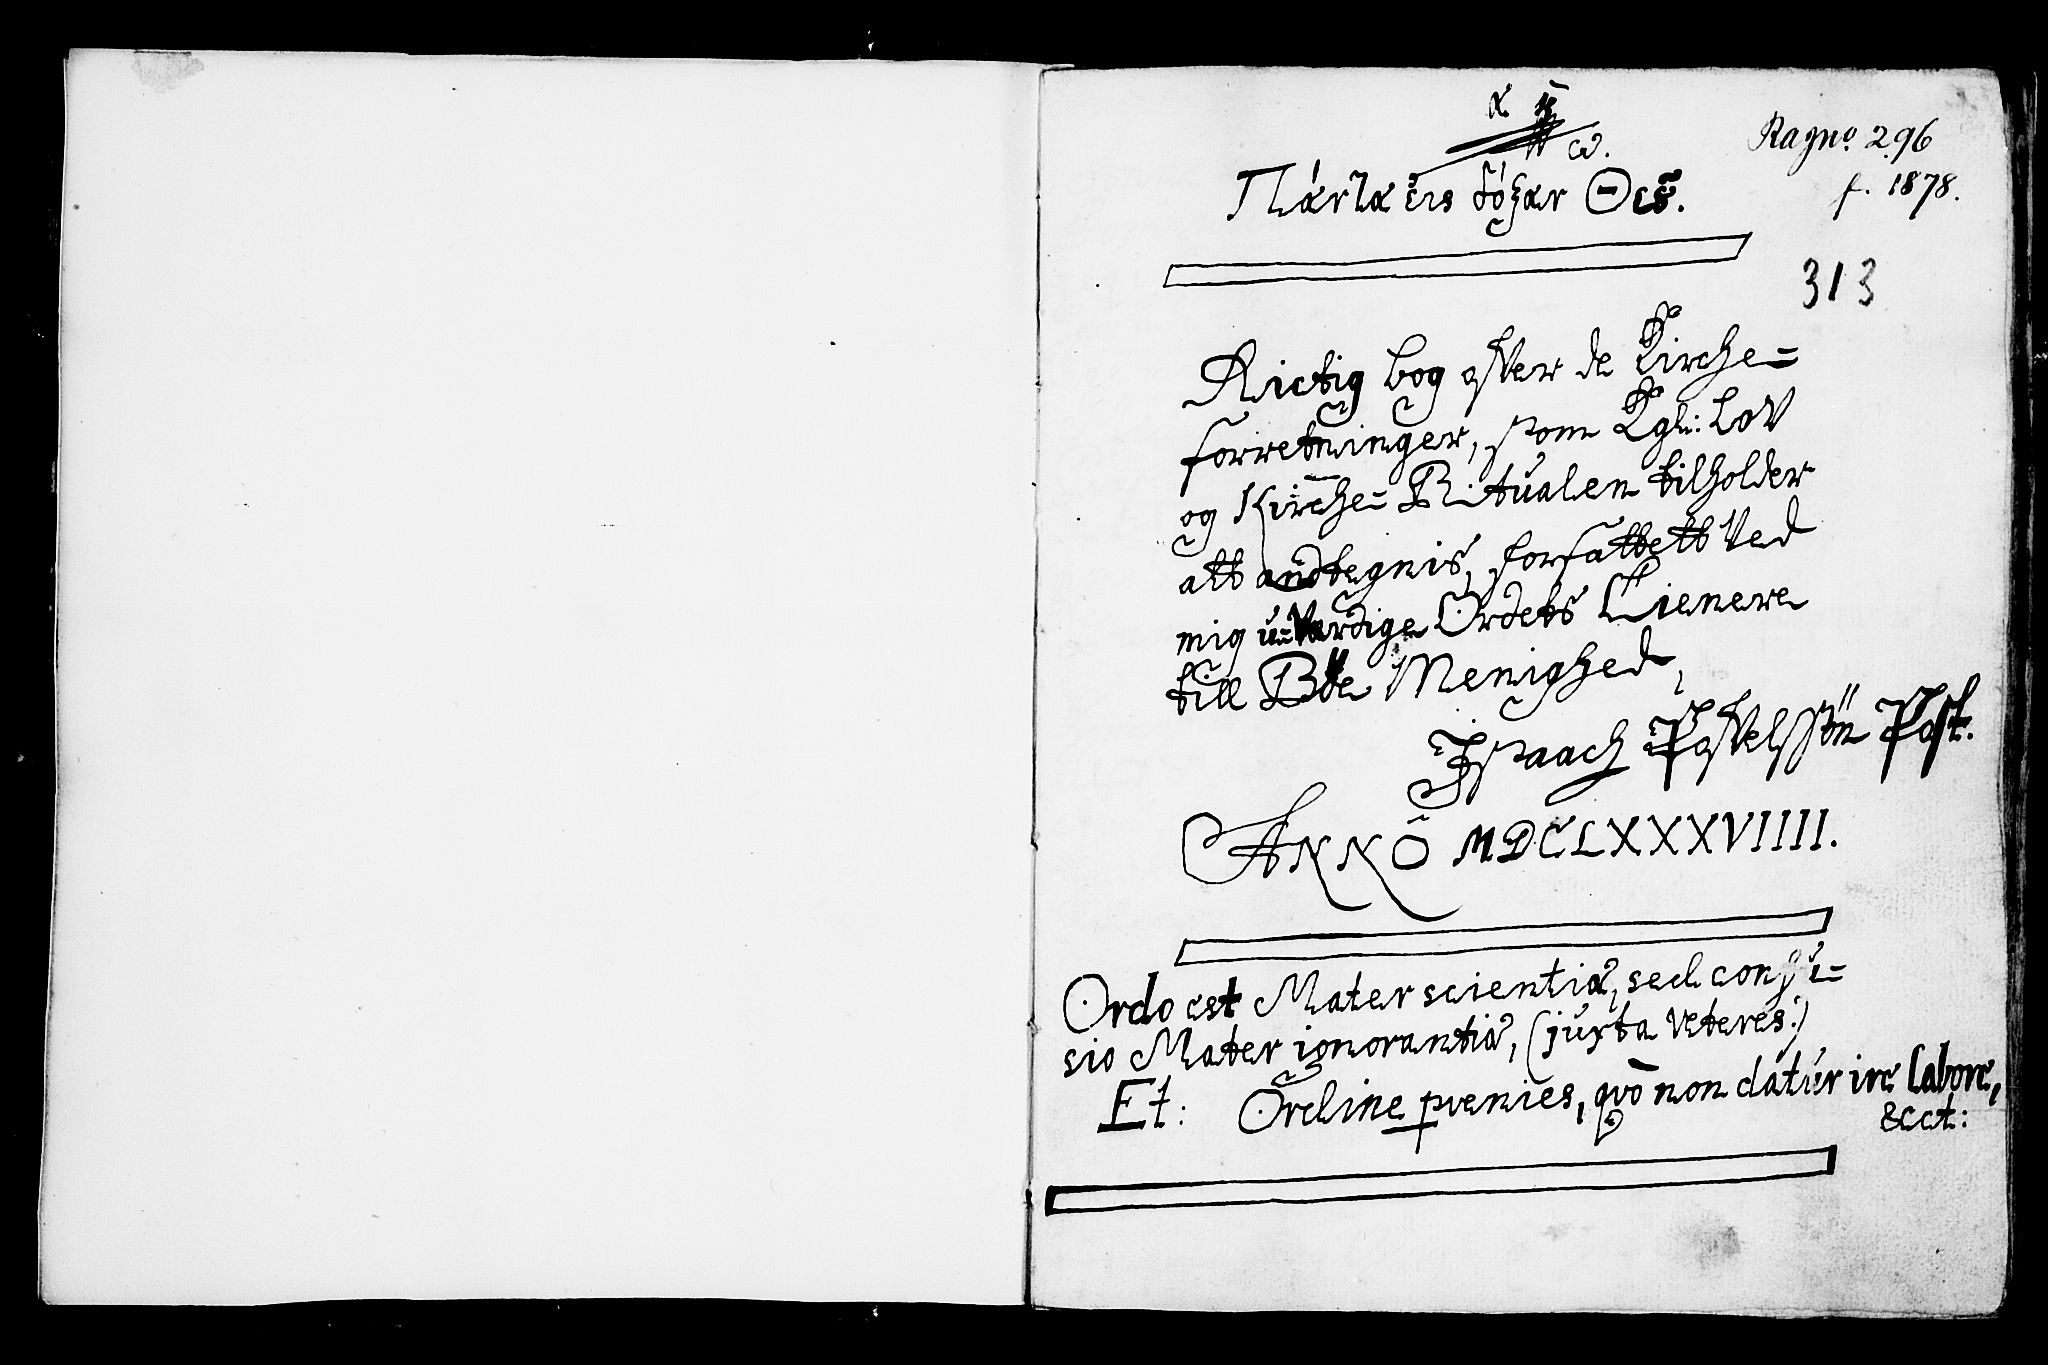 α
ω.
Πάντα εἰς δόξαν Θεȣ͂.
Ragno. 296
f. 1878.
313
Rictig bog ofver de Kirche=
forretninger, som Kgli: Lov
og Kirche= Ritualen tilholder
att andtegnis, forfattett Ved
mig u=Værdige Ordets Tienere
till Böe Menighed,
Jsaach Pofvelssön Past.
ANNÕ MDCLXXXVIIII.
Ordo est Mater scientiæ, sed confu=
sio Mater ignorantiæ, (juxta Veteres:)
Et: Ordine pervenies, qvò non datur ire labore,
&cct: